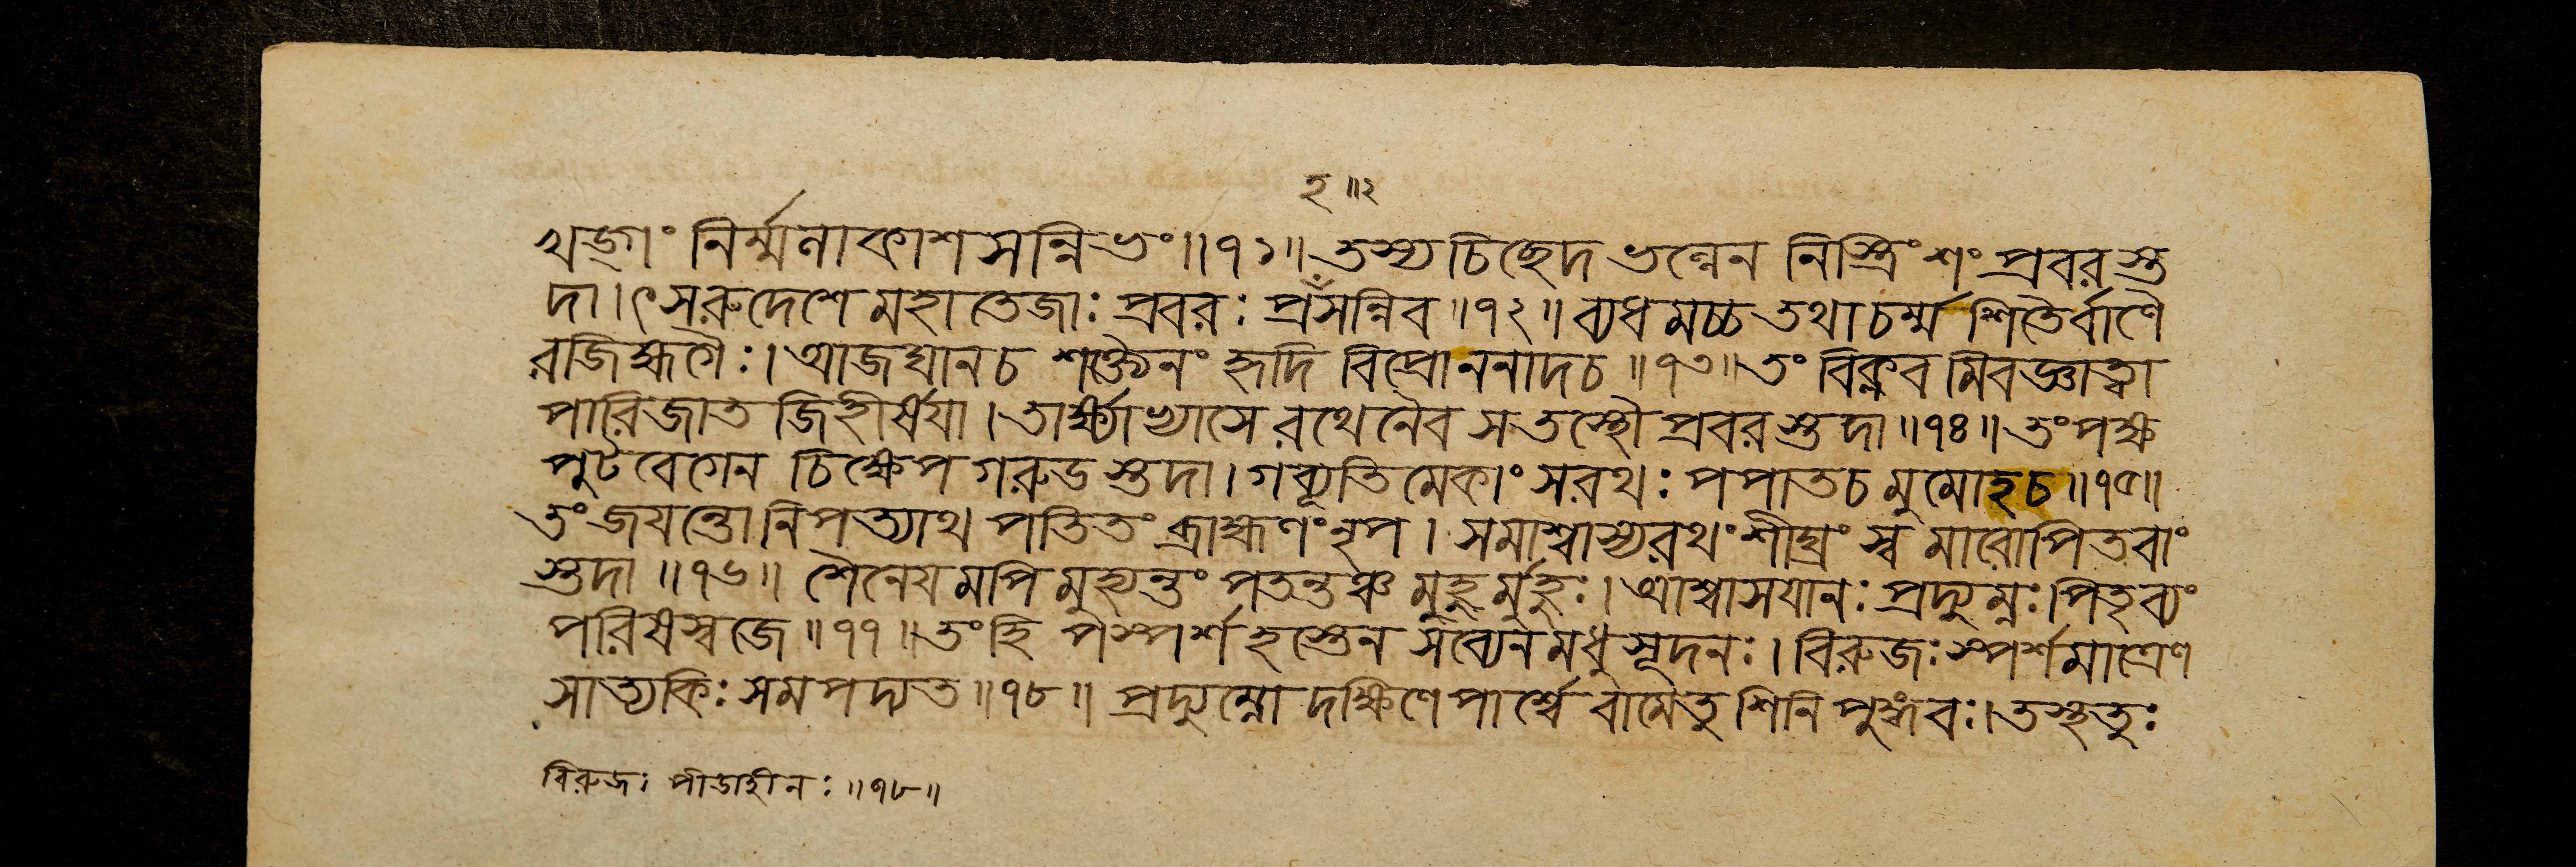 হ ॥২
খড্গং নির্ম্মলাকাশসন্নিভং॥৭১॥তস্যচিচ্ছেদ ভল্লেন নিস্ত্রিংশং প্রবরস্ত
দা।ৎসরুদেশে মহাতেজাঃ প্রবরঃ প্রহসন্নিব॥৭২॥ব্যধমচ্চ তথা চর্ম্ম শিতৈর্বাণৈ
রজিহ্মগৈঃ।আজঘানচ শক্ত্যৈনং হৃদি বিপ্রোননাদচ॥৭৩॥তং বিক্লব মিবজ্ঞাত্বা
পারিজাত জিহীর্ষয়া।তার্ক্ষ্যাভ্যাসে রথেনৈব সতস্থৌ প্রবরস্তদা॥৭৪॥তংপক্ষ
পুটবেগেন চিক্ষেপ গরুডস্তদা।গব্যূতিমেকাং সরথঃ পপাতচ মুমোহচ॥৭৫॥
তংজযন্তো নিপত্যাথ পতিতং ব্রাহ্মণংনৃপ।সমাশ্বাস্যরথংশীঘ্রং স্ব মারোপিতবাং
স্তদা॥৭৬॥শৈনেযমপি মুহ্যন্তং পতন্তঞ্চ মুহুর্মুহুঃ।আশ্বাসযানঃ প্রদ্যুম্নঃ।পিতৃব্যং
পরিষস্বজে॥৭৭॥তংহি পস্পর্শ হস্তেন সব্যেনমধুসূদনঃ।বিরুজঃস্পর্শমাত্রেণ
সাত্যকিঃসমপদ্যত॥৭৮॥প্রদ্যুম্নো দক্ষিণেপার্শ্বে বামেতু শিনি পুঙ্গবঃ।তস্থতুঃ
বিরুজঃ পীডাহীনঃ॥৭৮॥